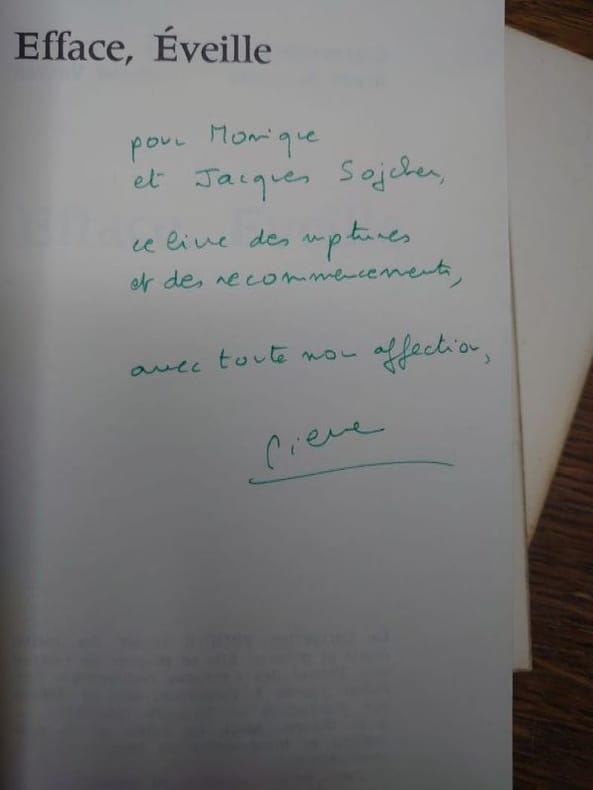 Efface, Éveille
pour Monique
et Jacques Sojcher,
ce livre des ruptures
et des recommencements,
avec toute mon affection,
Pierre